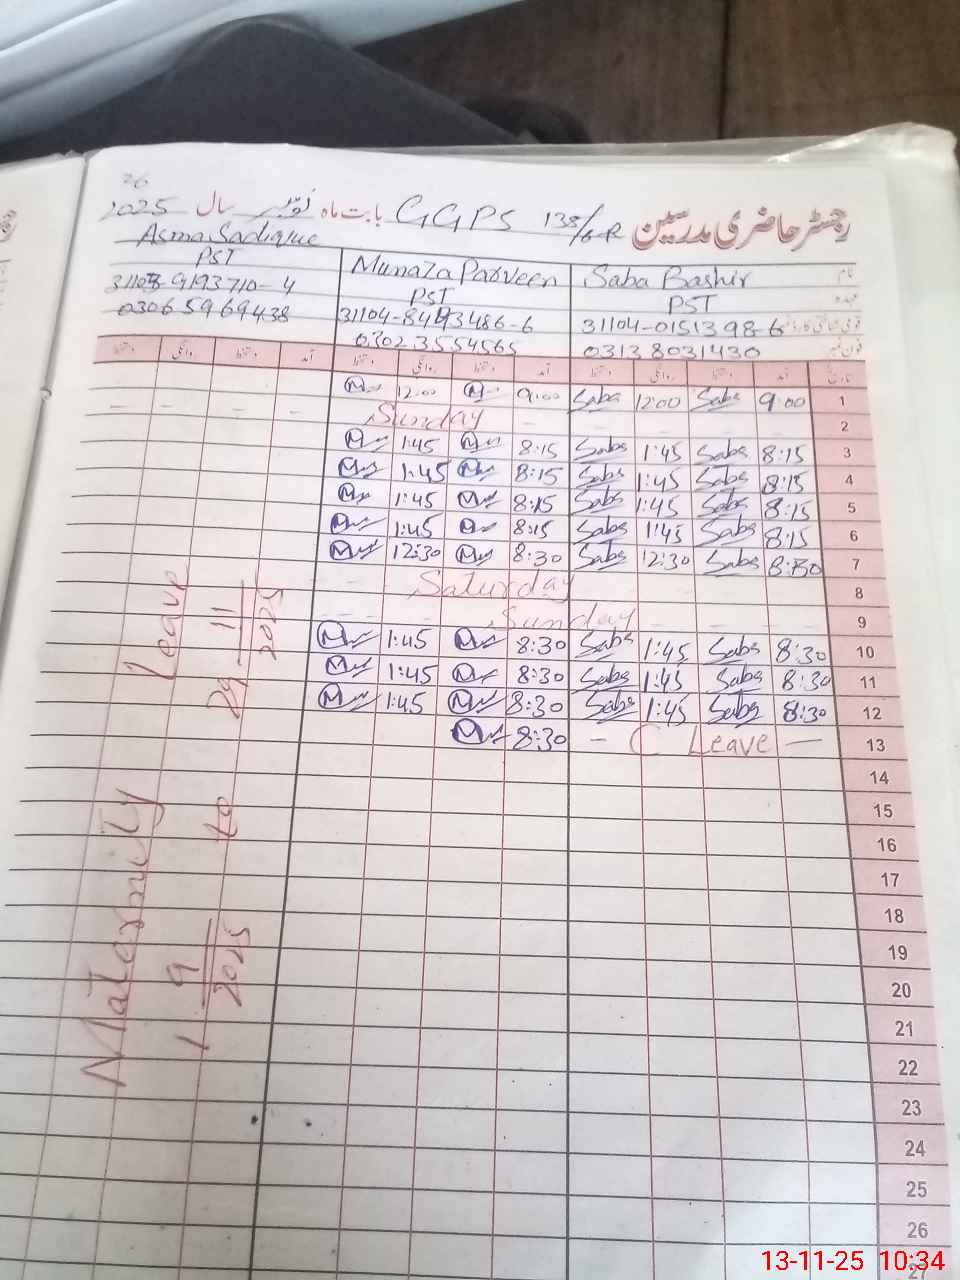 26
رجسٹر حاضری مدرسین GGPS 138/6-R بابت ماہ نومبر سال 2025
نام Saba Bashir Munaza Parveen Asma Sadique
عہدہ PST PST PST
31104-0151398-6 31104-8493486-6 4
فون نمبر 03138031430 03023554565 03065969438
تاریخ آمد دستخط روانگی دستخط آمد دستخط روانگی دستخط آمد دستخط روانگی دستخط
1 9:00 Saba 12:00 Saba 9:00 M 12:00 M
2 Sunday
3 8:15 Saba 1:45 Saba 8:15 M 1:45 M
4 8:15 Saba 1:45 Saba 8:15 M 1:45 M
5 8:15 Saba 1:45 Saba 8:15 M 1:45 M
6 8:15 Saba 1:45 Saba 8:15 M 1:45 M
7 8:30 Saba 12:30 Saba 8:30 M 12:30 M
8 Saturday
9 Sunday
10 8:30 Saba 1:45 Saba 8:30 M 1:45 M
11 8:30 Saba 1:45 Saba 8:30 M 1:45 M
12 8:30 Saba 1:45 Saba 8:30 M 1:45 M
13 — C Leave — 8:30 M
14
15
16
17
18
19
20
21
22
23
24
25
26
27
Maternity Leave
1 9/2025 to 29 11/2025
13-11-25 10:34